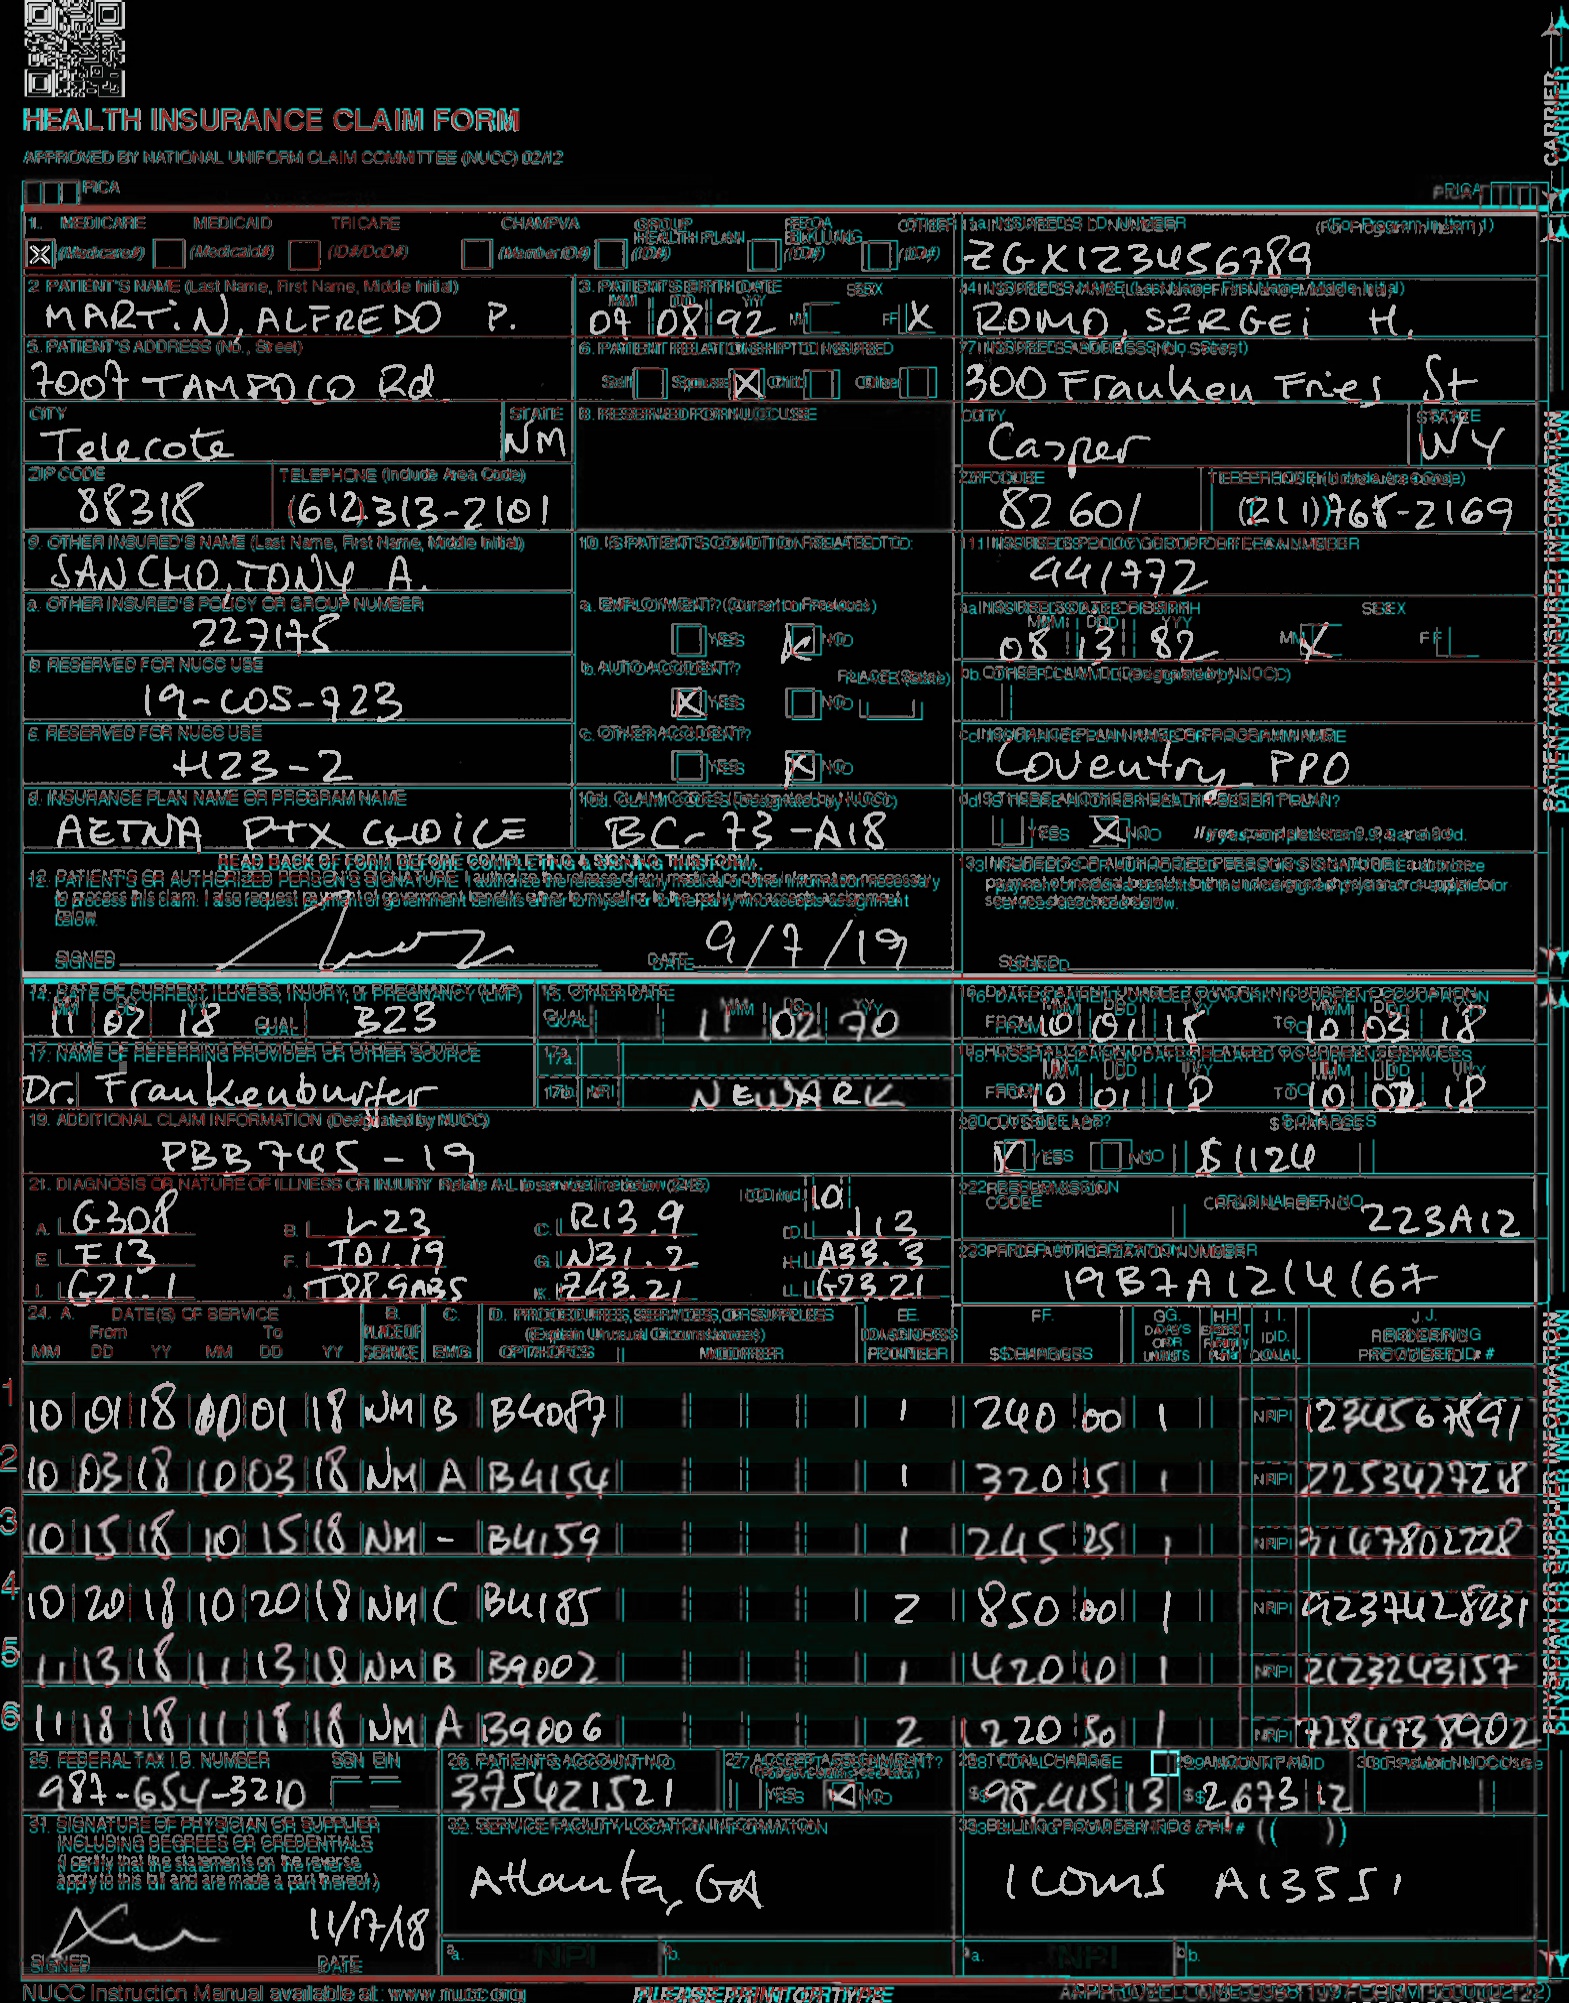 HEALTH INSURANCE CLAIM FORM
APPROVED BY NATIONAL UNIFORM CLAIM COMMITTEE (NUCC) 02/12
PICA
PICA
CARRIER
1. MEDICARE MEDICAID TRICARE CHAMPVA GROUP HEALTH PLAN FECA BLK LUNG OTHER
(Medicare#) (Medicaid#) (ID#/DoD#) (Member ID#) (ID#) (ID#) (ID#)
1a. INSURED'S I.D. NUMBER (For Program in Item 1)
ZGX123456789
2. PATIENT'S NAME (Last Name, First Name, Middle Initial)
MARTIN, ALFREDO P.
3. PATIENT'S BIRTH DATE SEX
MM DD YY
04 08 92 M F X
4. INSURED'S NAME (Last Name, First Name, Middle Initial)
ROMO, SERGEI H.
5. PATIENT'S ADDRESS (No., Street)
7007 TAMPOCO Rd
6. PATIENT RELATIONSHIP TO INSURED
Self Spouse X Child Other
7. INSURED'S ADDRESS (No., Street)
300 Franken Fries St
CITY STATE
Telecote NM
8. RESERVED FOR NUCC USE
CITY STATE
Casper WY
ZIP CODE TELEPHONE (Include Area Code)
88318 (612) 313-2101
ZIP CODE TELEPHONE (Include Area Code)
82601 (211) 768-2169
9. OTHER INSURED'S NAME (Last Name, First Name, Middle Initial)
SANCHO, TONY A.
10. IS PATIENT'S CONDITION RELATED TO:
11. INSURED'S POLICY GROUP OR FECA NUMBER
441772
a. OTHER INSURED'S POLICY OR GROUP NUMBER
227175
a. EMPLOYMENT? (Current or Previous)
YES X NO
a. INSURED'S DATE OF BIRTH SEX
MM DD YY
08 13 82 M X F
b. RESERVED FOR NUCC USE
19-COS-723
b. AUTO ACCIDENT? PLACE (State)
X YES NO
b. OTHER CLAIM ID (Designated by NUCC)
c. RESERVED FOR NUCC USE
H23-2
c. OTHER ACCIDENT?
YES X NO
c. INSURANCE PLAN NAME OR PROGRAM NAME
Coventry PPO
d. INSURANCE PLAN NAME OR PROGRAM NAME
AETNA PTX CHOICE
10d. CLAIM CODES (Designated by NUCC)
BC-73-A18
d. IS THERE ANOTHER HEALTH BENEFIT PLAN?
YES X NO If yes, complete items 9, 9a, and 9d.
READ BACK OF FORM BEFORE COMPLETING & SIGNING THIS FORM.
12. PATIENT'S OR AUTHORIZED PERSON'S SIGNATURE I authorize the release of any medical or other information necessary
to process this claim. I also request payment of government benefits either to myself or to the party who accepts assignment
below.
SIGNED DATE 9/7/19
13. INSURED'S OR AUTHORIZED PERSON'S SIGNATURE I authorize
payment of medical benefits to the undersigned physician or supplier for
services described below.
SIGNED
PATIENT AND INSURED INFORMATION
14. DATE OF CURRENT ILLNESS, INJURY, or PREGNANCY (LMP)
MM DD YY
11 02 18 QUAL. B23
15. OTHER DATE
QUAL. MM DD YY
11 02 70
16. DATES PATIENT UNABLE TO WORK IN CURRENT OCCUPATION
MM DD YY MM DD YY
FROM 10 01 18 TO 10 03 18
17. NAME OF REFERRING PROVIDER OR OTHER SOURCE
Dr. Frankenburfer
17a.
17b. NPI NEWARK
18. HOSPITALIZATION DATES RELATED TO CURRENT SERVICES
MM DD YY MM DD YY
FROM 10 01 TO 10 02 18
19. ADDITIONAL CLAIM INFORMATION (Designated by NUCC)
PBB745-19
20. OUTSIDE LAB? $ CHARGES
X YES NO $1124
21. DIAGNOSIS OR NATURE OF ILLNESS OR INJURY Relate A-L to service line below (24E)
ICD Ind. 10
A. G308 B. L23 C. R13.9 D. J13
E. F13 F. I01.19 G. N31.2 H. A33.3
I. G21.1 J. T88.9ABS K. Z43.21 L. G23.21
22. RESUBMISSION CODE ORIGINAL REF. NO.
223A12
23. PRIOR AUTHORIZATION NUMBER
19B7A1214167
24. A. DATE(S) OF SERVICE B. C. D. PROCEDURES, SERVICES, OR SUPPLIES E. F. G. H. I. J.
From To PLACE OF (Explain Unusual Circumstances) DIAGNOSIS DAYS OR ID. RENDERING
MM DD YY MM DD YY SERVICE EMG CPT/HCPCS MODIFIER POINTER $ CHARGES UNITS QUAL. PROVIDER ID. #
1 10 01 18 10 01 18 NM B B4087 1 240 00 1 NPI 1234567891
2 10 03 18 10 03 18 NM A B4154 1 320 15 1 NPI 2253427218
3 10 15 18 10 15 18 NM - B4159 1 245 25 1 NPI 2147802228
4 10 20 18 10 20 18 NM C B4185 2 850 00 1 NPI 9237428231
5 11 13 18 11 13 18 NM B B9002 1 420 10 1 NPI 2123243157
6 11 18 18 11 18 18 NM A B9006 2 1220 30 1 NPI 7284738902
PHYSICIAN OR SUPPLIER INFORMATION
25. FEDERAL TAX I.D. NUMBER SSN EIN
987-654-3210
26. PATIENT'S ACCOUNT NO.
375421521
27. ACCEPT ASSIGNMENT?
YES X NO
28. TOTAL CHARGE
$ 98,415 13
29. AMOUNT PAID
$ 2,673 12
30. Rsvd for NUCC Use
31. SIGNATURE OF PHYSICIAN OR SUPPLIER
INCLUDING DEGREES OR CREDENTIALS
(I certify that the statements on the reverse
apply to this bill and are made a part thereof.)
11/17/18
SIGNED DATE
32. SERVICE FACILITY LOCATION INFORMATION
Atlanta, GA
a. NPI b.
33. BILLING PROVIDER INFO & PH # ( )
A13551
a. NPI b.
NUCC Instruction Manual available at: www.nucc.org
PLEASE PRINT OR TYPE